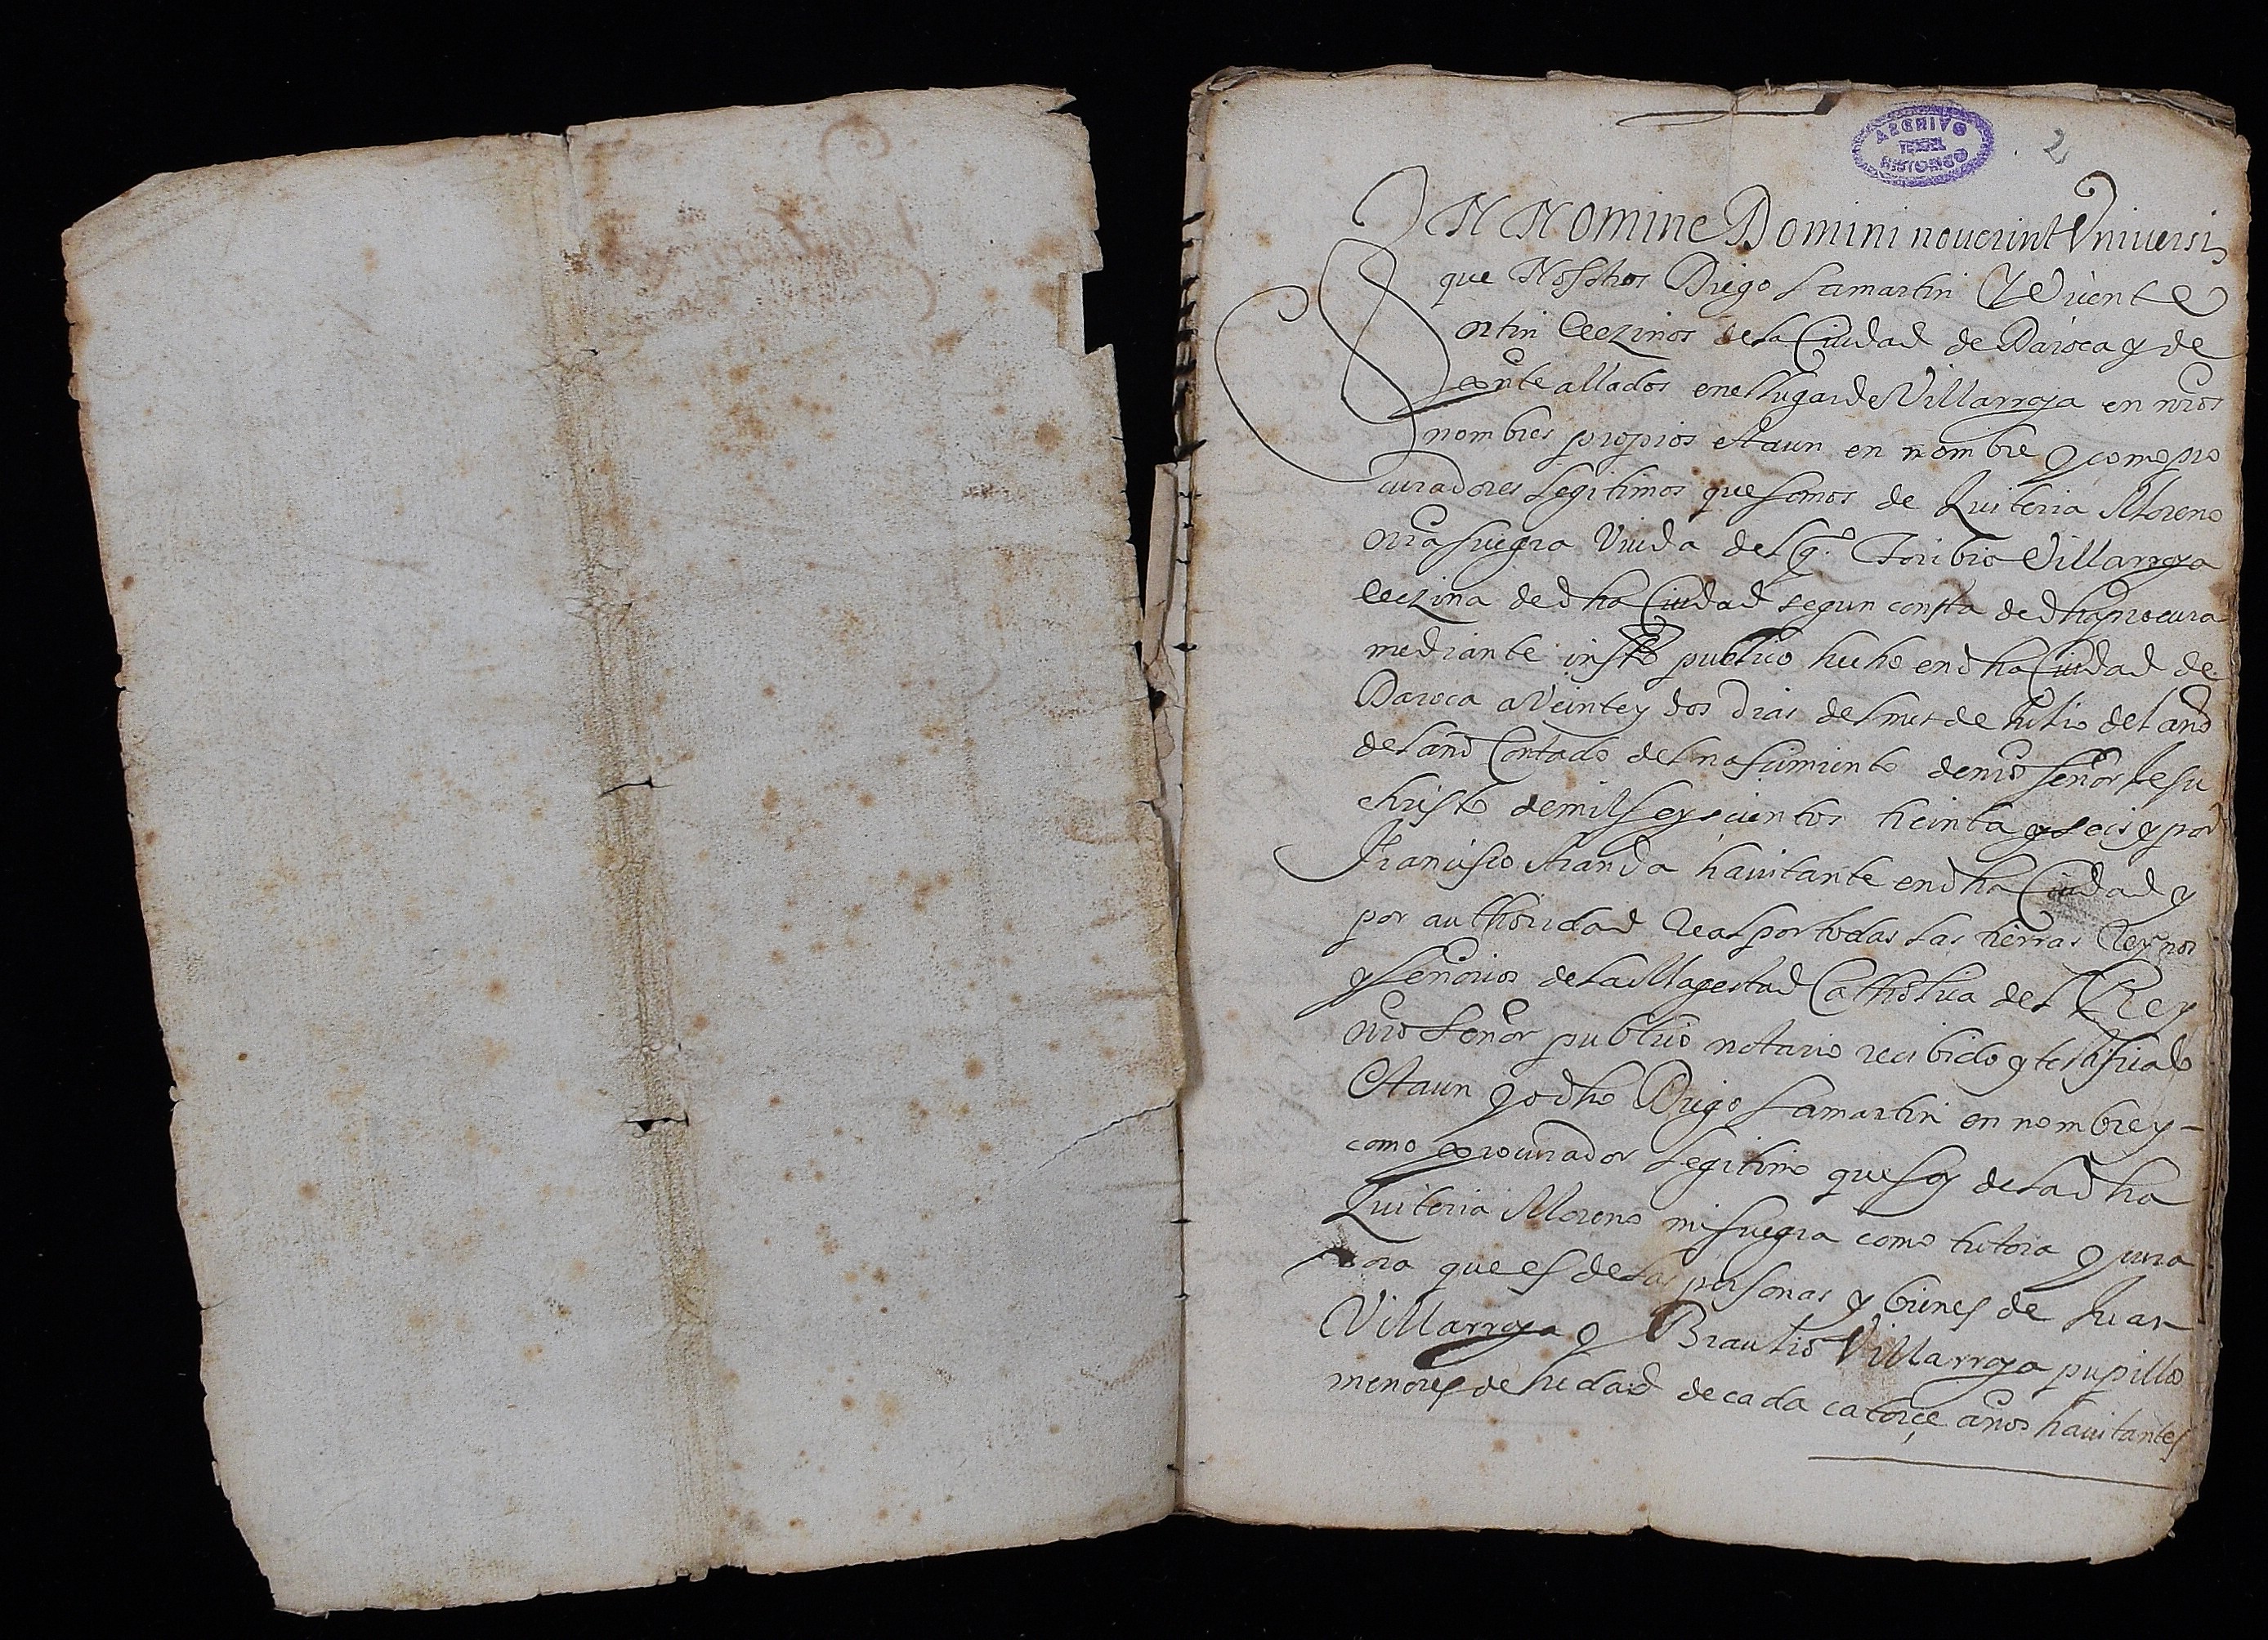 2
IN Nomine Domini nouerint Vniuersi
que Nosotros Diego Lamartin Y Viçente
ortin Vezinos de la Ciudad de Daroca y de
pnte allados en el lugar de Villarroya en nros
nombres propios et aun en nombre y como pro
curadores legitimos que somos de Quiteria Moreno
nra suegra Viuda del qº Toribio Villarroya
Vezina de dha Ciudad segun consta de dha procura
mediante insto publico hecho en dha Ciudad de
Daroca a Veinte y dos dias del mes de Julio del año
del año Contado del nasçimiento de nro señor Jesu
christo de mil seyscientos treinta y seis y por
Francisco Aranda hauitante en dha Ciudad y
por authoridad Real por todas las tierras Reynos
y señorios de la Magestad Catholica del Rey
nro Señor publico notario recibido y testificado
Et aun yo dho Diego Lamartin en nombre y
como procurador legitimo que soy de la dha
Quiteria Moreno mi suegra como tutora y cura
dora que es de las personas y bienes de Juan
Villarroya y Braulio Villarroya pupillo
menores de hedad de cada catorçe años hauitantes